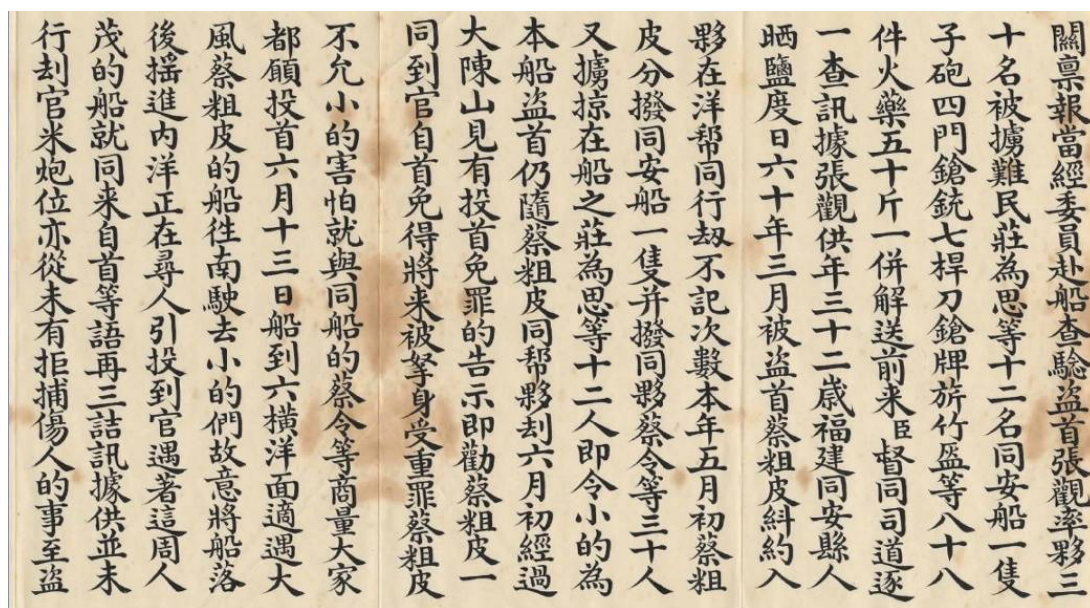 關禀報當經委員赴船查驗盜首張觀率夥三
十名被擄難民莊為思等十二名同安船一隻
子砲四門鎗銃七桿刀鎗牌旂竹盔等八十八
件火藥五十斤一併解送前来臣督同司道逐
一查訊據張觀供年三十二歲福建同安縣人
晒鹽度日六十年三月被盜首蔡粗皮糾約入
夥在洋帮同行刼不記次數本年五月初蔡粗
皮分撥同安船一隻并撥同夥蔡令等三十人
又擄掠在船之莊為思等十二人即令小的為
本船盜首仍隨蔡粗皮同帮夥刦六月初經過
大陳山見有投首免罪的告示即勸蔡粗皮一
同到官自首免得將来被拏身受重罪蔡粗皮
不允小的害怕就與同船的蔡令等商量大家
都願投首六月十三日船到六横洋面適遇大
風蔡粗皮的船徃南駛去小的們故意將船落
後揺進内洋正在尋人引投到官遇著這周人
茂的船就同来自首等語再三詰訊據供並未
行刦官米炮位亦從未有拒捕傷人的事至盜